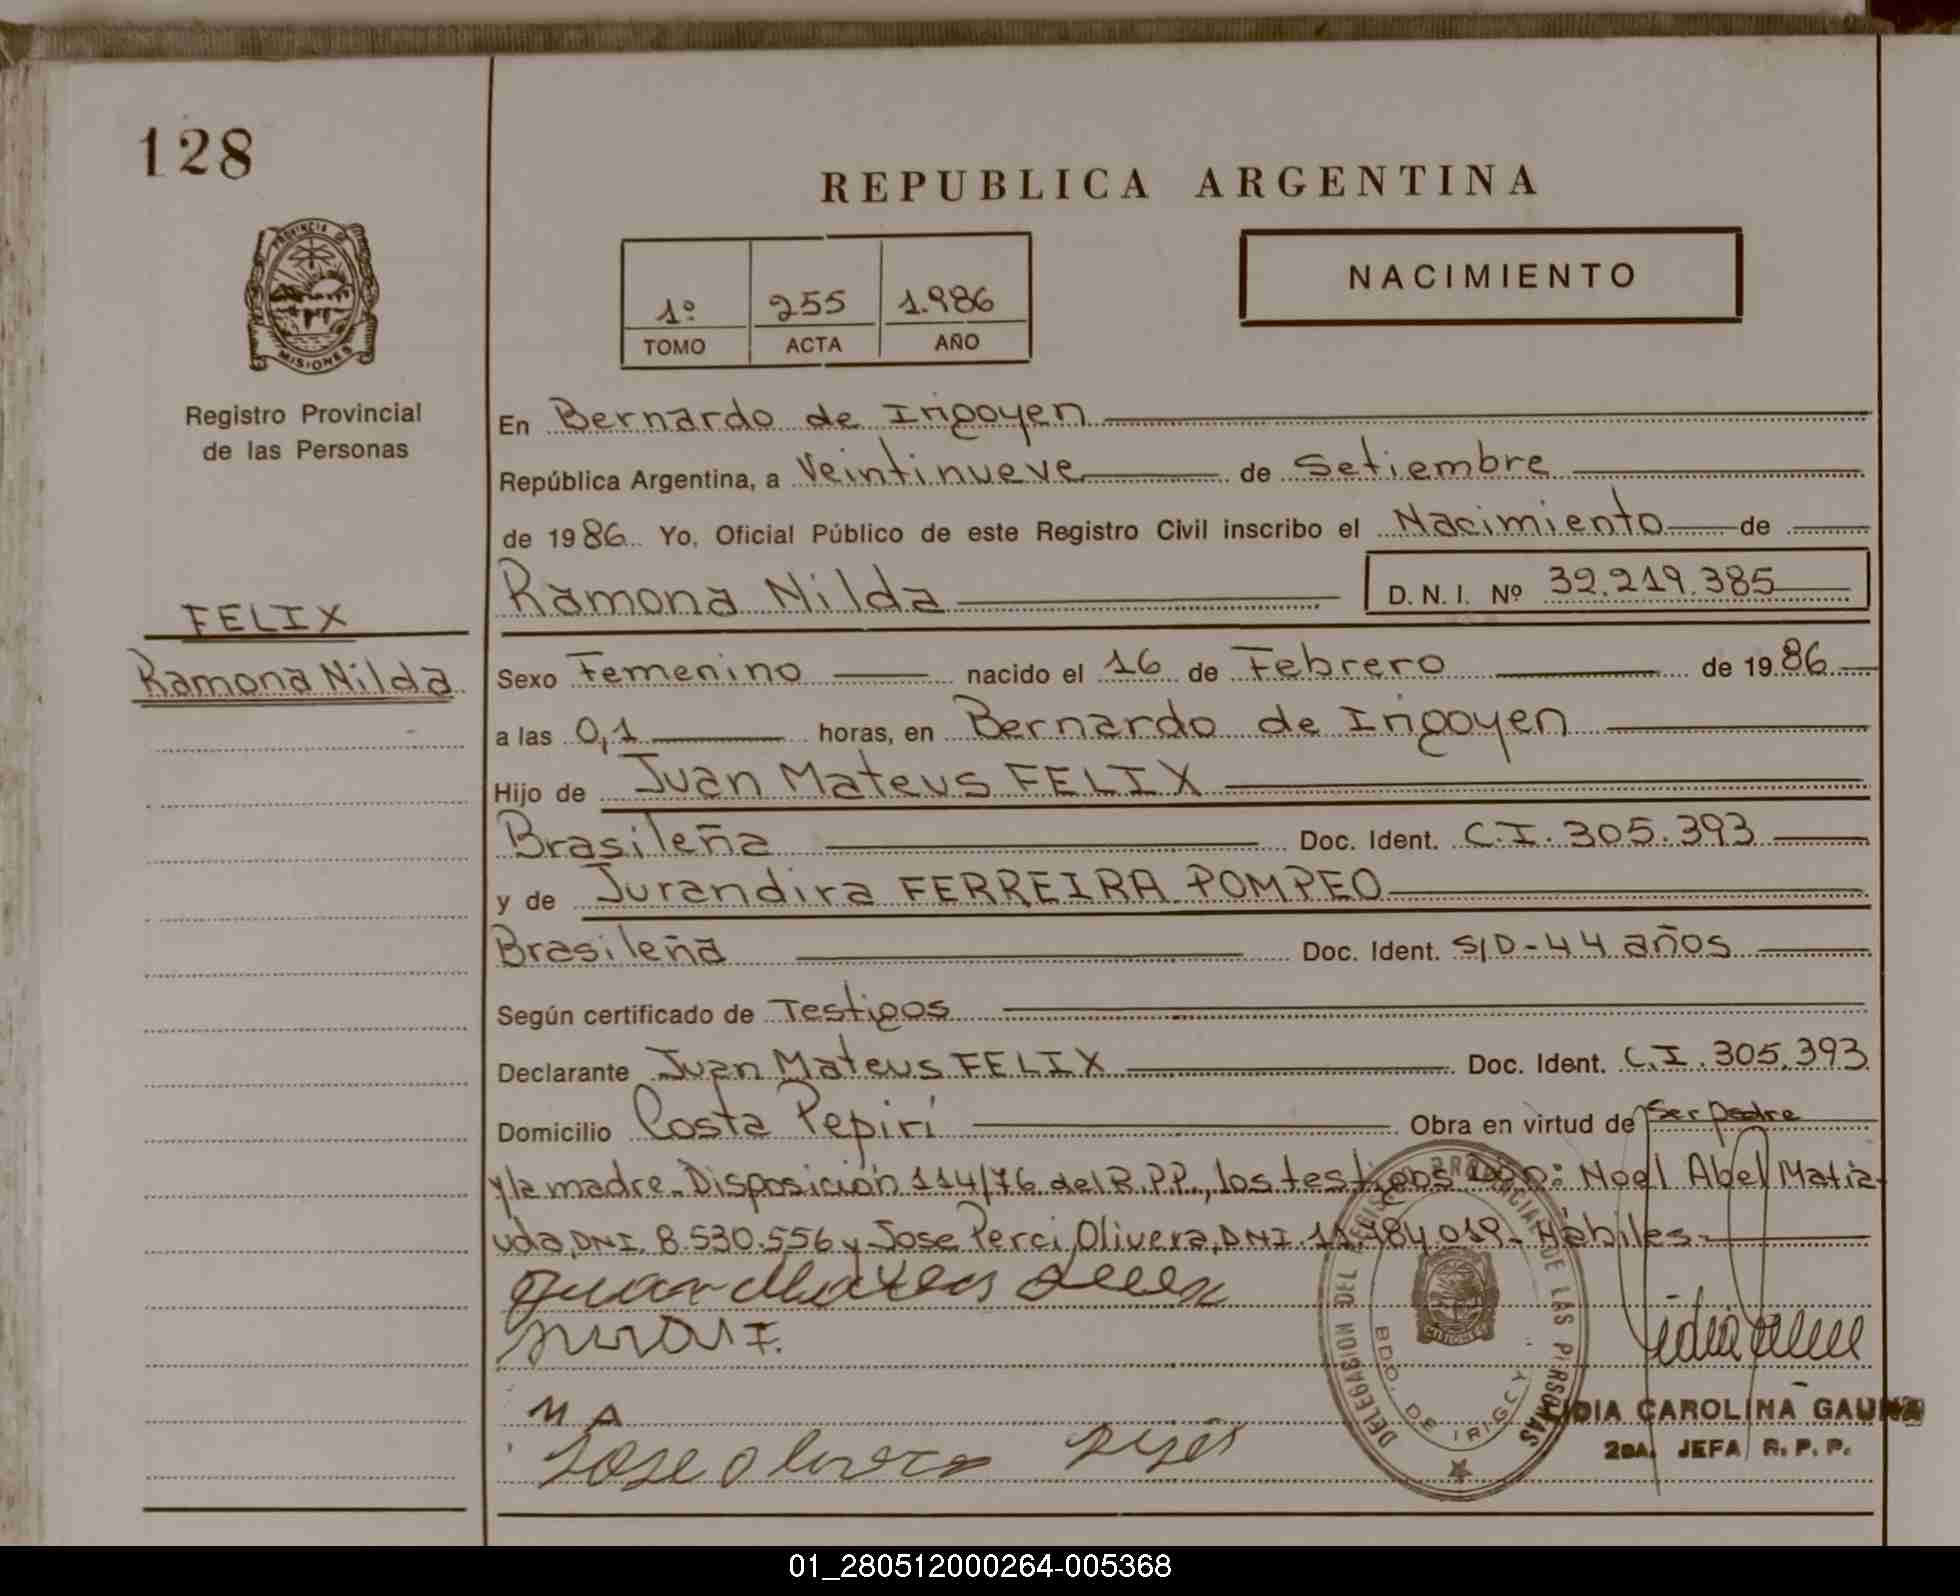 128
REPUBLICA ARGENTINA
PROVINCIA DE MISIONES
1º 255 1.986
TOMO ACTA AÑO
NACIMIENTO
Registro Provincial
de las Personas
FELIX
Ramona Nilda
En Bernardo de Irigoyen
República Argentina, a Veintinueve de Setiembre
de 1986 Yo, Oficial Público de este Registro Civil inscribo el Nacimiento de
Ramona Nilda D. N. I. Nº 32.219.385
Sexo Femenino nacido el 16 de Febrero de 1986
a las 0,1 horas, en Bernardo de Irigoyen
Hijo de Juan Mateus FELIX
Brasileña Doc. Ident. C.I. 305.393
y de Jurandira FERREIRA POMPEO
Brasileña Doc. Ident. S/D-44 años
Según certificado de Testigos
Declarante Juan Mateus FELIX Doc. Ident. C.I. 305.393
Domicilio Costa Pepirí Obra en virtud de Ser padre
y la madre. Disposición 114/76 del R.P.P., los testigos son: Noel Abel Matia-
uda, DNI. 8.530.556 y Jose Perci Olivera, DNI. 11.784.019- Hábiles-
M A
Jose olivera
DELEGACION DEL REGISTRO PROVINCIAL DE LAS PERSONAS
BDO. DE IRIGOY
MISIONES
LIDIA CAROLINA GAUNA
2DA. JEFA R. P. P.
01_280512000264-005368